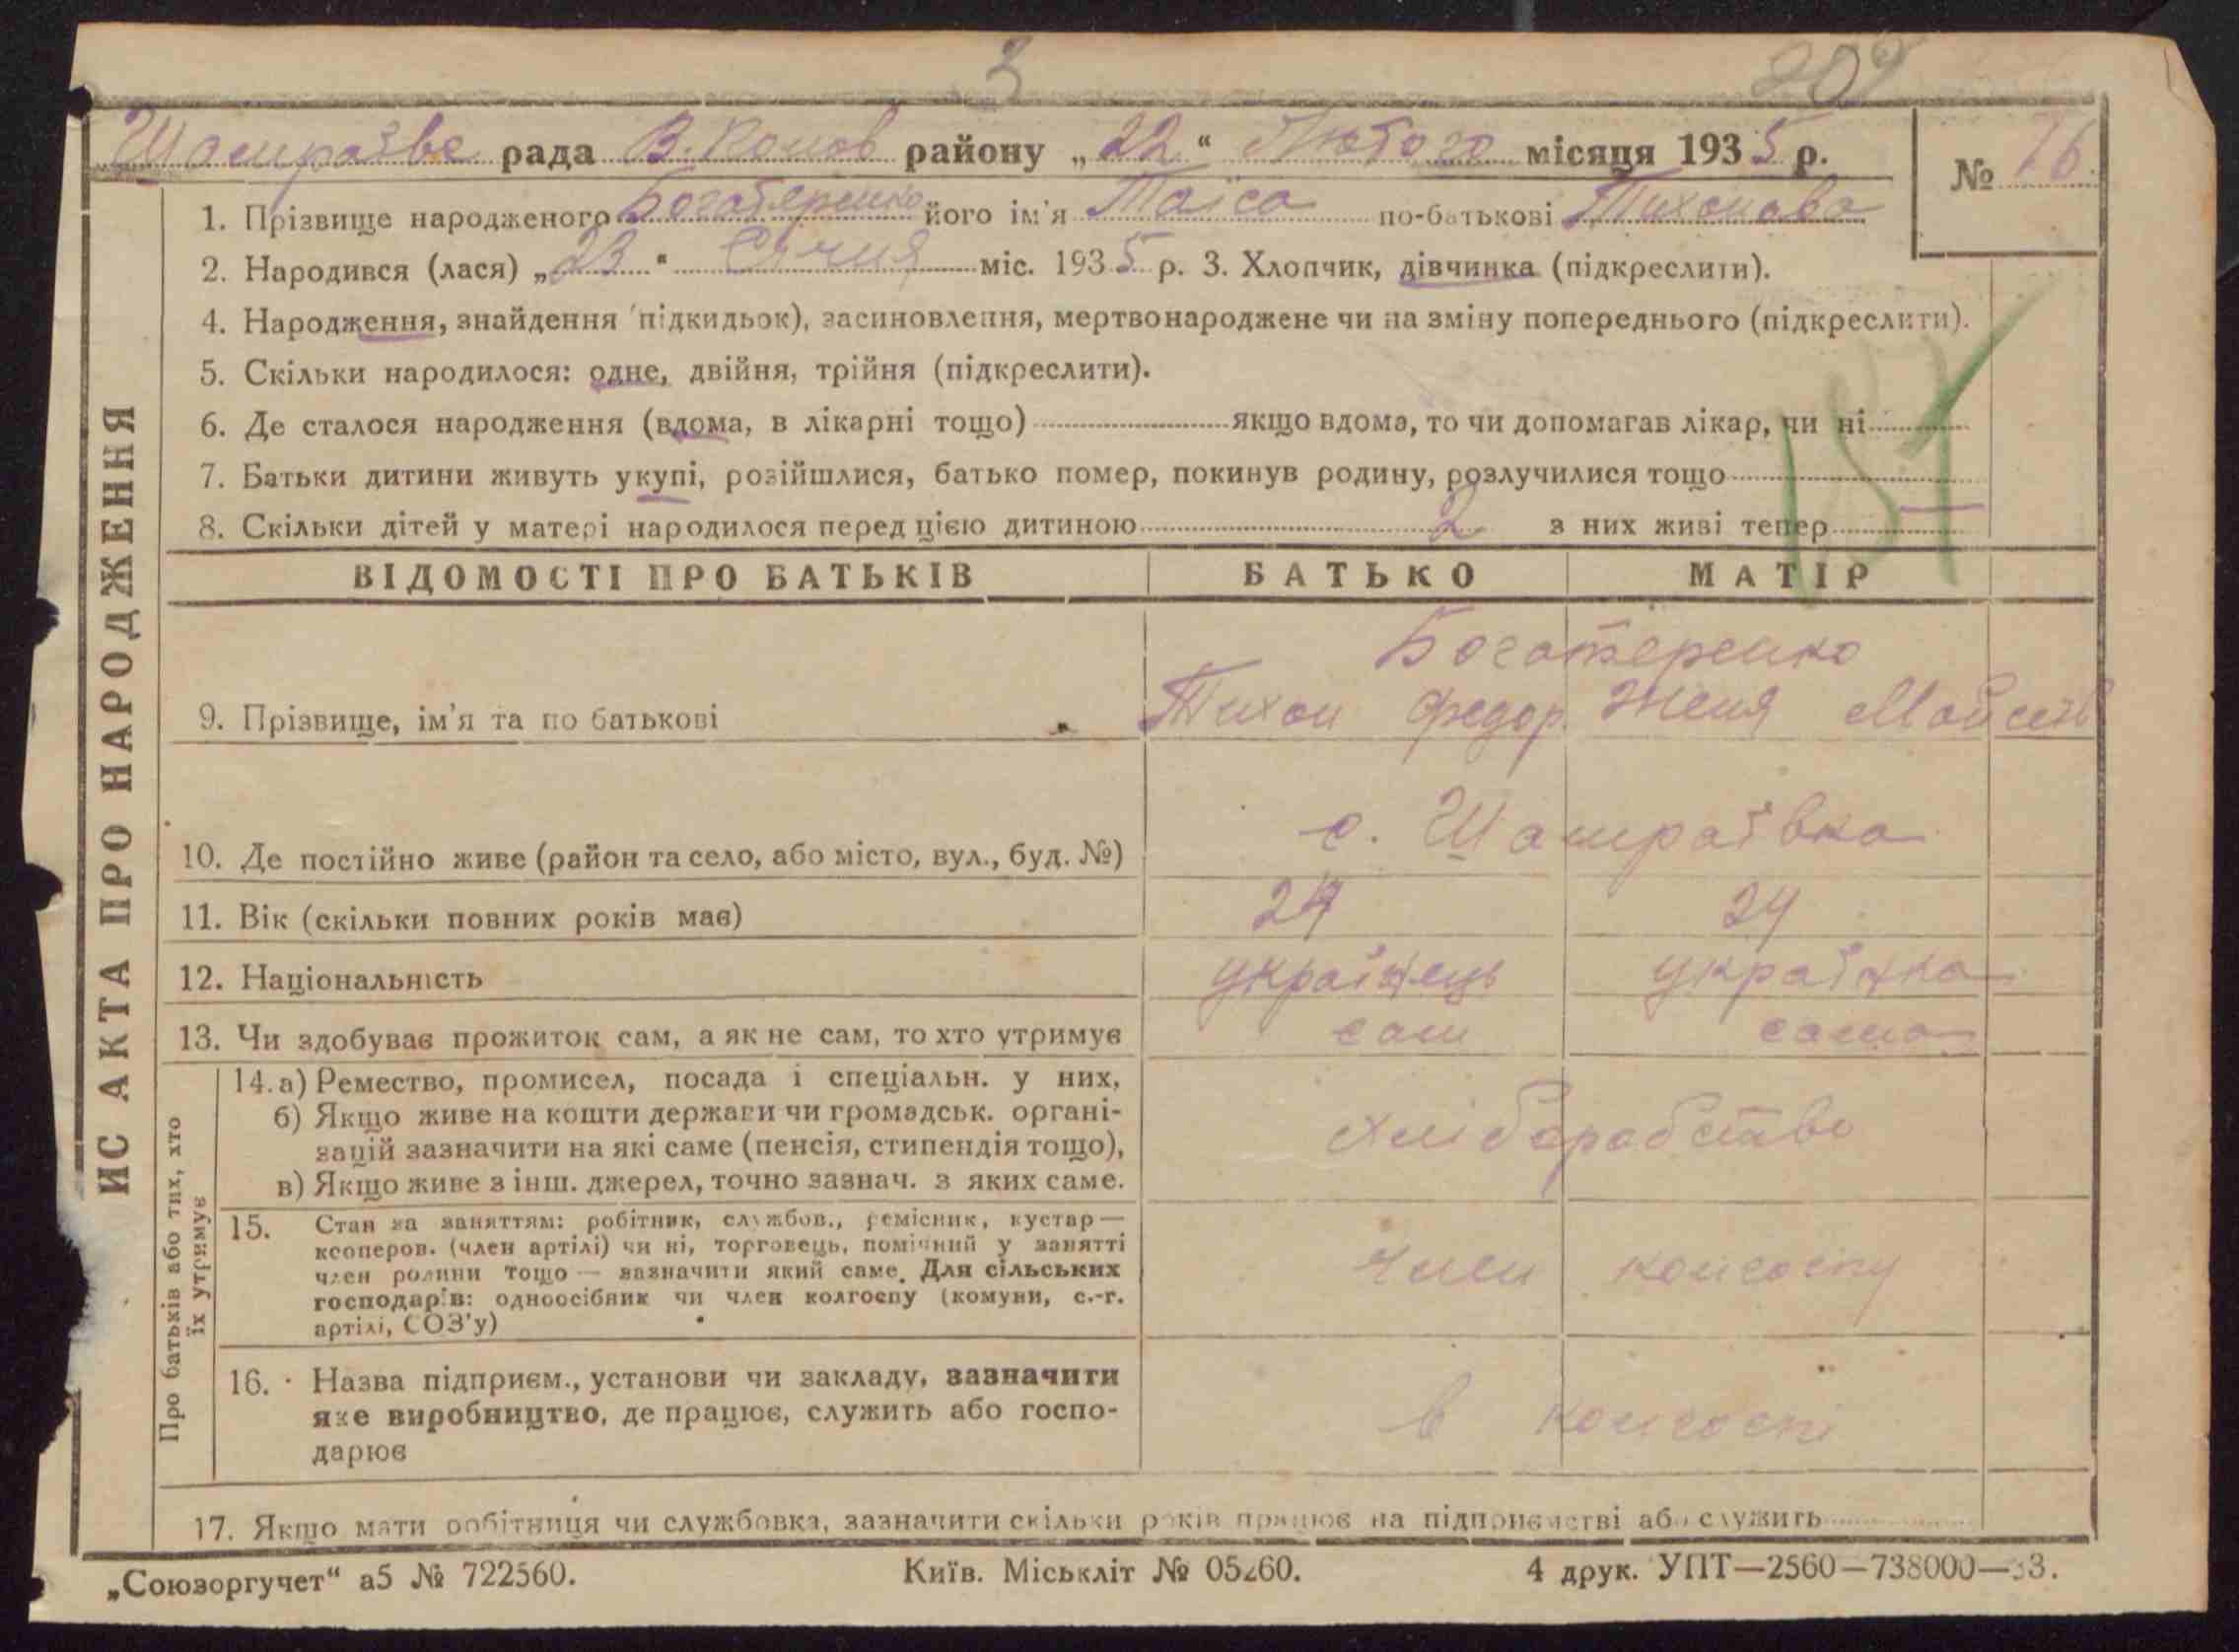 3 209
Шамраївс рада В. Полов району „22“ Лютого місяця 1935 р. № 76.
1. Прізвище народженого Богатеренко його ім'я Таїса по-батькові Тихонова
2. Народився (лася) „23“ Січня міс. 1935 р. 3. Хлопчик, дівчинка (підкреслити).
4. Народження, знайдення (підкидьок), засиновлення, мертвонароджене чи на зміну попереднього (підкреслити).
5. Скільки народилося: одне, двійня, трійня (підкреслити).
6. Де сталося народження (вдома, в лікарні тощо) якщо вдома, то чи допомагав лікар, чи ні
7. Батьки дитини живуть укупі, розійшлися, батько помер, покинув родину, розлучилися тощо
8. Скільки дітей у матері народилося перед цією дитиною 2 з них живі тепер
ИС АКТА ПРО НАРОДЖЕННЯ
ВІДОМОСТІ ПРО БАТЬКІВ БАТЬКО МАТІР
Богатеренко
9. Прізвище, ім'я та по батькові Тихон Федор. Женя Мойсеїв
10. Де постійно живе (район та село, або місто, вул., буд. №) с. Шамраївка
11. Вік (скільки повних років має) 24 24
12. Національність українець українка
13. Чи здобуває прожиток сам, а як не сам, то хто утримує сам сама
Про батьків або тих, хто
їх утримує
14. а) Ремество, промисел, посада і спеціальн. у них,
б) Якщо живе на кошти держави чи громадськ. органі-
зацій зазначити на які саме (пенсія, стипендія тощо), хліборобство
в) Якщо живе з інш. джерел, точно зазнач. з яких саме.
15. Стан за заняттям: робітник, службов., ремісник, кустар —
кооперов. (член артілі) чи ні, торговець, помічний у занятті
член родини тощо — зазначити який саме. Для сільських член колгоспу
господарів: одноосібник чи член колгоспу (комуни, с.-г.
артілі, СОЗ'у)
16. Назва підприєм., установи чи закладу, зазначити
яке виробництво, де працює, служить або госпо- в колгоспі
дарює
17. Якщо мати робітниця чи службовка, зазначити скільки років працює на підприємстві або служить
„Союзоргучет“ а5 № 722560. Київ. Міськліт № 05260. 4 друк. УПТ—2560—738000—33.